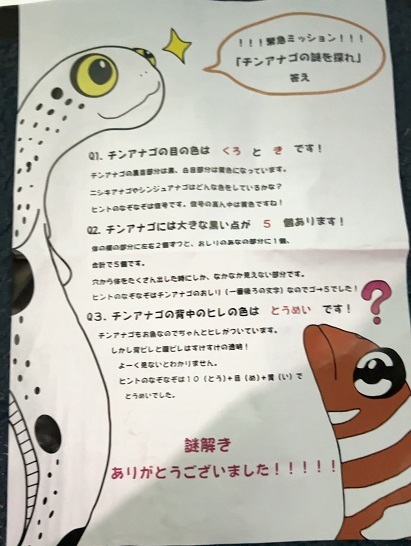 !!!緊急ミッション!!!
「チンアナゴの謎を探れ」
答え
Q1. チンアナゴの目の色は くろ と き です!
チンアナゴの黒目部分は黒、白目部分は黄色になっています。
ニシキアナゴやシンジュアナゴはどんな色をしているかな?
ヒントのなぞなぞは信号です。信号の真ん中は黄色ですね!
Q2. チンアナゴには大きな黒い点が 5 個あります!
体の横の部分に左右2個ずつと、おしりのあなの部分に1個、
合計で5個です。
穴から体をたくさん出した時にしか、なかなか見えない部分です。
ヒントのなぞなぞはチンアナゴのおしり(一番後ろの文字)なのでゴ→5でした!
Q3. チンアナゴの背中のヒレの色は とうめい です!
チンアナゴもお魚なのでちゃんとヒレがついています。
しかし背ビレと腹ビレはすけすけの透明!
よーく見ないとわかりません。
ヒントのなぞなぞは10(とう)+目(め)+胃(い)で
とうめいでした。
謎解き
ありがとうございました!!!!!